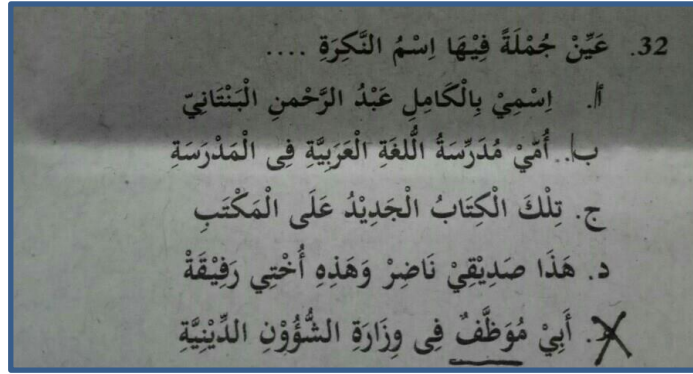 32. عَيِّنْ جُمْلَةً فِيْهَا اِسْمُ النَّكِرَةِ ....
أ. اِسْمِيْ بِالْكَامِلِ عَبْدُ الرَّحْمنِ الْبَنْتَانِيّ
ب. أُمّيْ مُدَرِّسَةُ الُّلغَةِ الْعَرَبِيَّةِ فِى الْمَدْرَسَةِ
ج. تِلْكَ الْكِتَابُ الْجَدِيْدُ عَلَى الْمَكْتَبِ
د. هَذَا صَدِيْقِيْ نَاضِرْ وَهَذِهِ أُخْتِي رَفِيْقَةْ
. أَبِيْ مُوَظَّفٌ فِى وِزَارَةِ الشُّؤُوْنِ الدِّيْنِيَّةِ